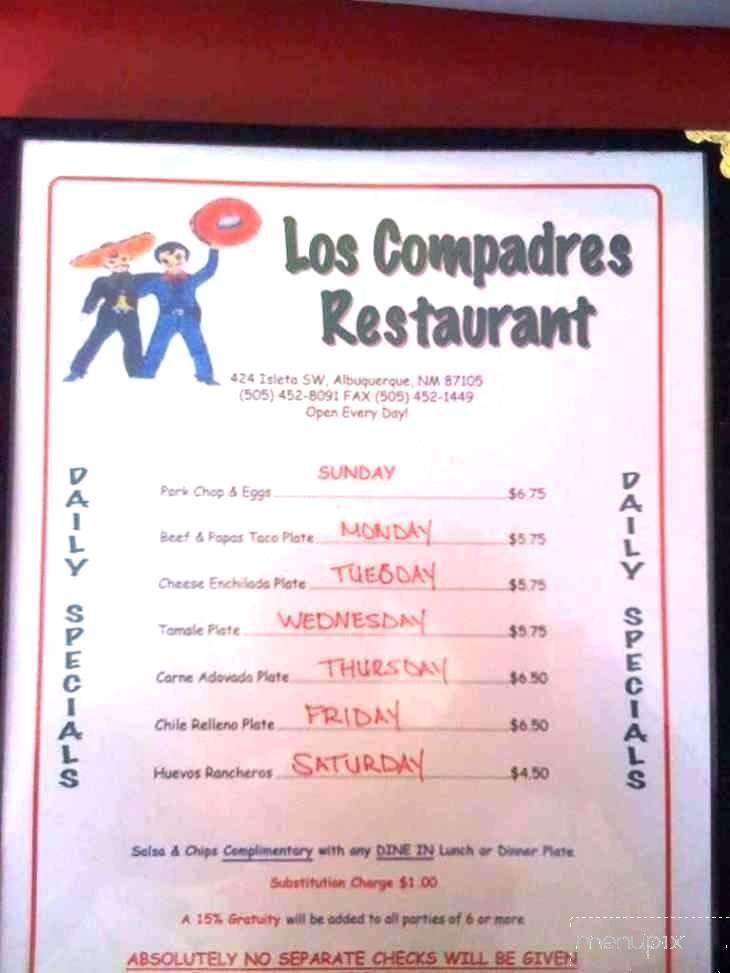 Los Compadres
Restaurant
424 Isleta SW, Albuquerque, NM 87105
(505) 452-8091 FAX (505) 452-1449
Open Every Day!
DAILY SPECIALS
DAILY SPECIALS
SUNDAY
Pork Chop & Eggs $6.75
Beef & Papas Taco Plate MONDAY $5.75
Cheese Enchilada Plate TUESDAY $5.75
Tamale Plate WEDNESDAY $5.75
Carne Adovada Plate THURSDAY $6.50
Chile Relleno Plate FRIDAY $6.50
Huevos Rancheros SATURDAY $4.50
Salsa & Chips Complimentary with any DINE IN Lunch or Dinner Plate
Substitution Charge $1.00
A 15% Gratuity will be added to all parties of 6 or more
ABSOLUTELY NO SEPARATE CHECKS WILL BE GIVEN
menupix